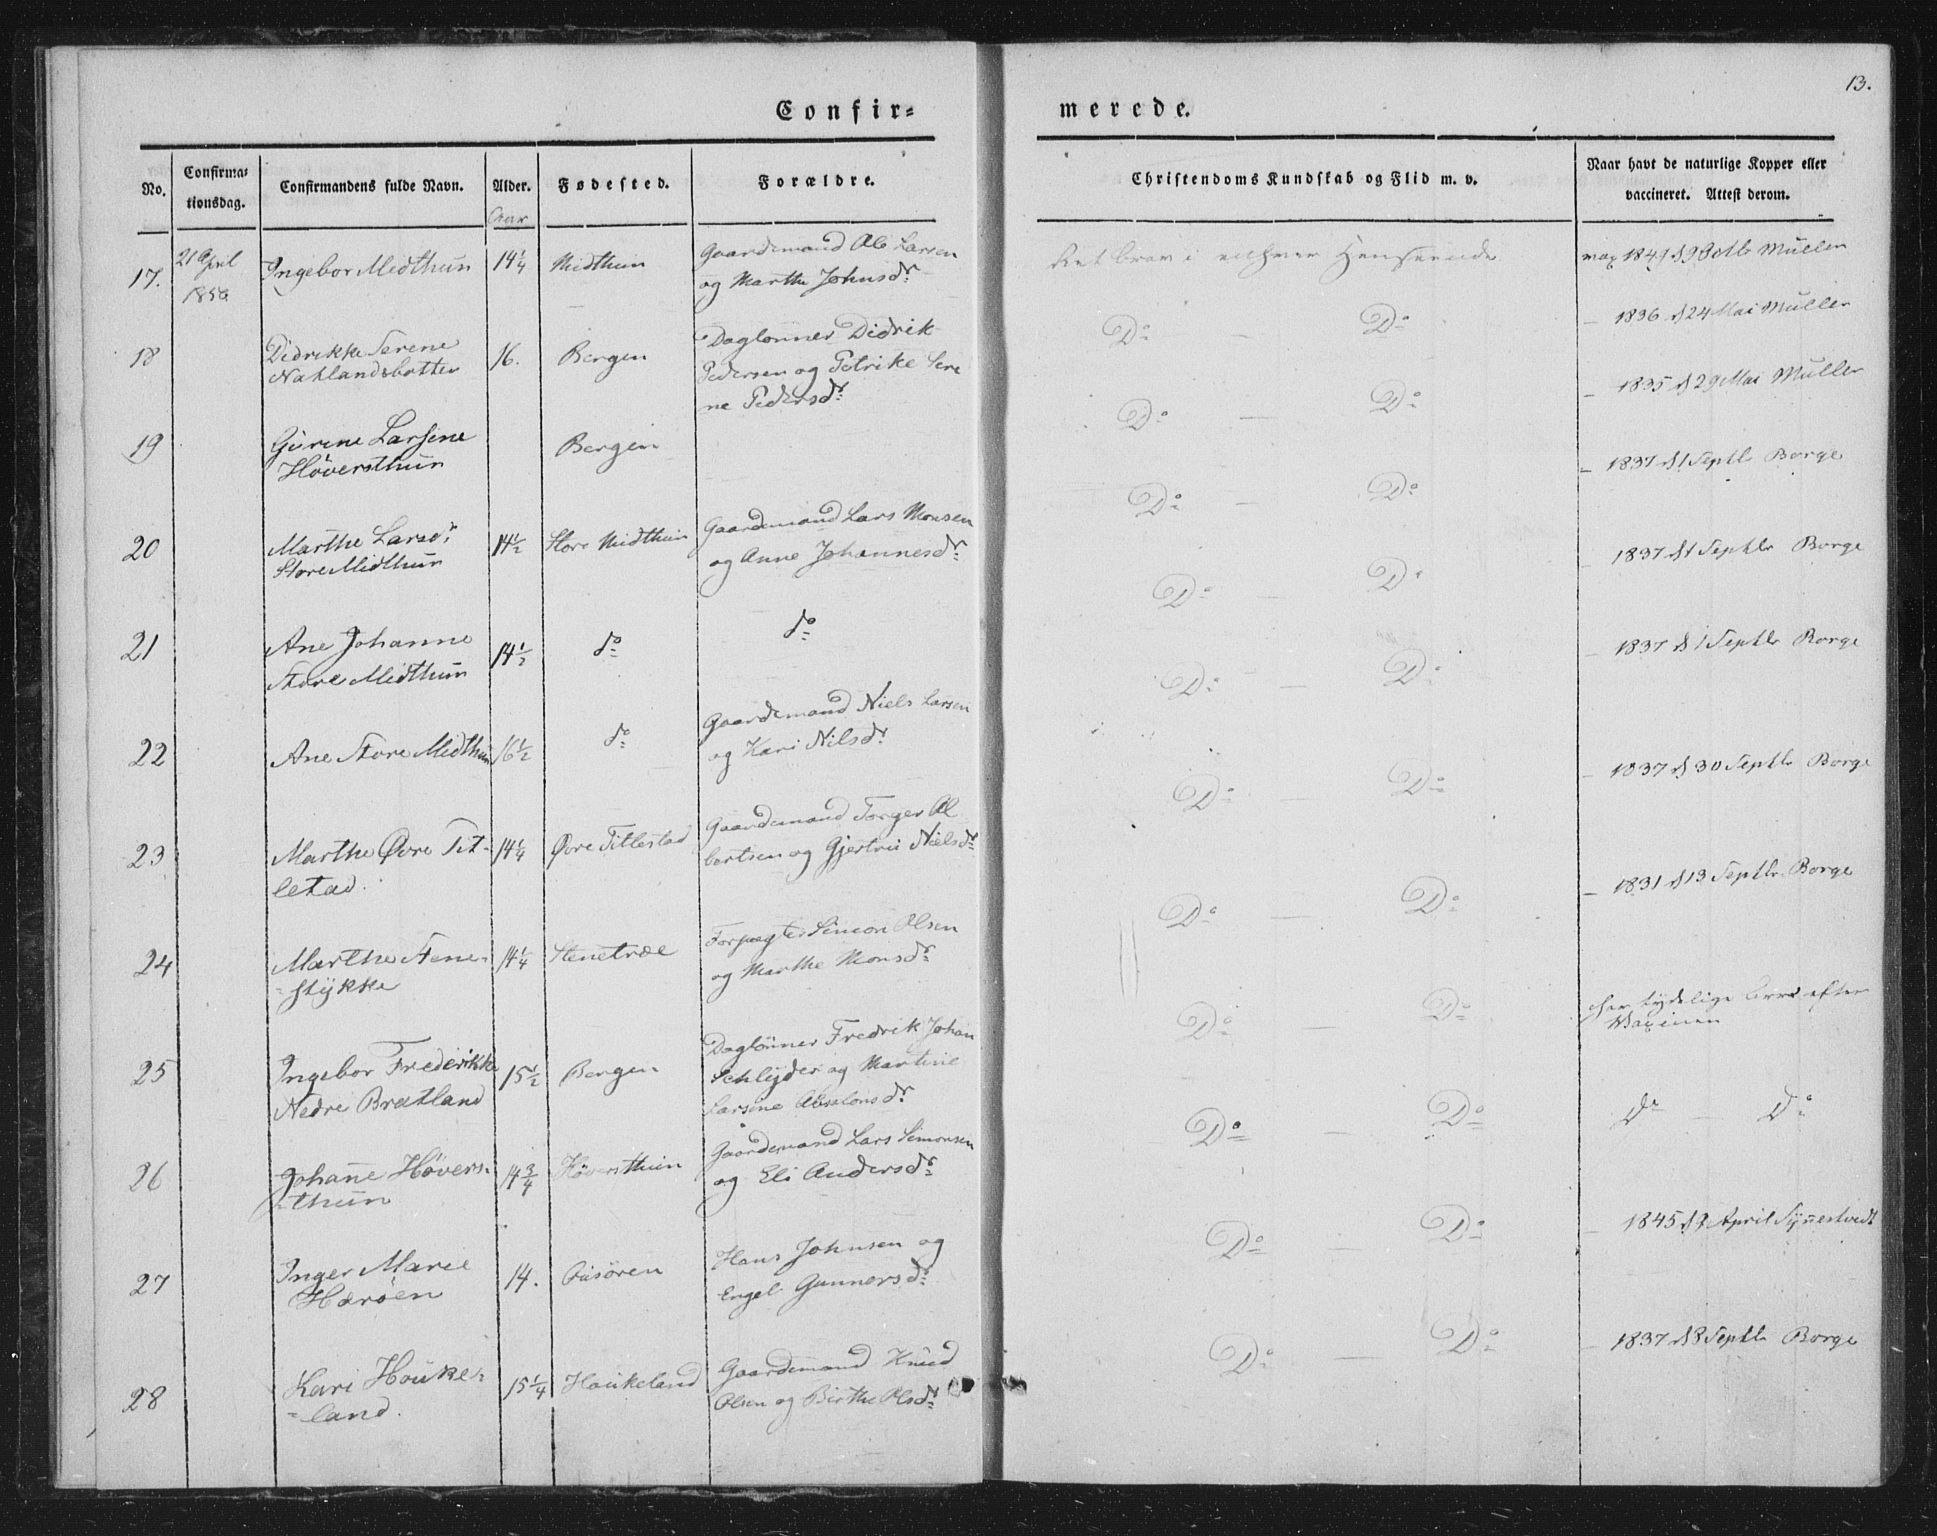 13.
Confir-
merede.
No.
Confirma-
tionsdag.
Confirmandens fulde Navn.
Alder.
Fødested.
Forældre.
Christendoms Kundskab og Flid m. v.
Naar havt de naturlige Kopper eller
vaccineret. Attest derom.
17.
21 April
Ingebor Midthun
14 1/4
Midthun
Gaardemand Ole Larsen
og Marthe Johnsdr.
i enhver Henseende
Müller
18
Didrikke Serene
Natlandsbotten
16.
Bergen
Daglønner Didrik
Pedersen og Petrike Sere
ne Pedersdr.
Do — Do
1836 d 24 Mai Müller
19
Gurine Larsine
Høversthun
Bergen
Do — Do
1835 d 29 Mai Müller
20
Marthe Larsd.
Store Midthun
14 1/2
Store Midthun
Gaardemand Lars Monsen
og Anne Johannesdr.
Do — Do
1837 d 1 Septbr Borge
21
Ane Johanne
Store Midthun
14 1/2
do
do
Do — Do
1837 d 1 Septbr Borge
22
Ane Store Midthun
16 1/2
do
Gaardemand Niels Larsen
og Kari Nilsdr.
Do — Do
1837 d 1 Septbr Borge
23
Marthe Øvre Tit-
lestad.
14 1/4
Øvre Titlestad
Gaardemand Torger Al
bertsen og Gjertru Nielsdr.
Do — Do
1837 d 30 Septbr Borge
24
Marthe Stene-
-stykke
14 1/4
Stenetræe
Forpagter Simon Olsen
og Marthe Monsdr.
Do — Do
1831 d 13 Septbr Borge
25
Ingebor Frederikke
Nedre Bratland
15 1/2
Bergen
Daglönner Fredrik Johan
Schlyder og Martine
Larsine Absalonsdr.
Do — Do
har tydelige efter
Vaxinen
26
Johanne Høvers-
-thun
14 3/4
Høversthun
Gaardemand Lars Simonsen
og Eli Andersdr.
Do — Do
Do — Do
27
Inger Marie
Harøen
14.
Hans Johnsen og
Engel Gunnersdr.
Do — Do
1845 d 2 April Synnestvedt
28
Kari Houke-
-land.
15 1/4
Haukeland
Gaardemand Knud
Olsen og Birthe Olsdr.
Do — Do
1837 d 8 Septbr Borge